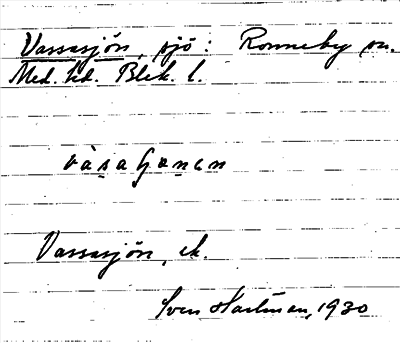 Vassasjön, sjö: Ronneby sn.
Med. hd. Blek. l.
Vassasjön, ek.
Sven Hartman, 1930